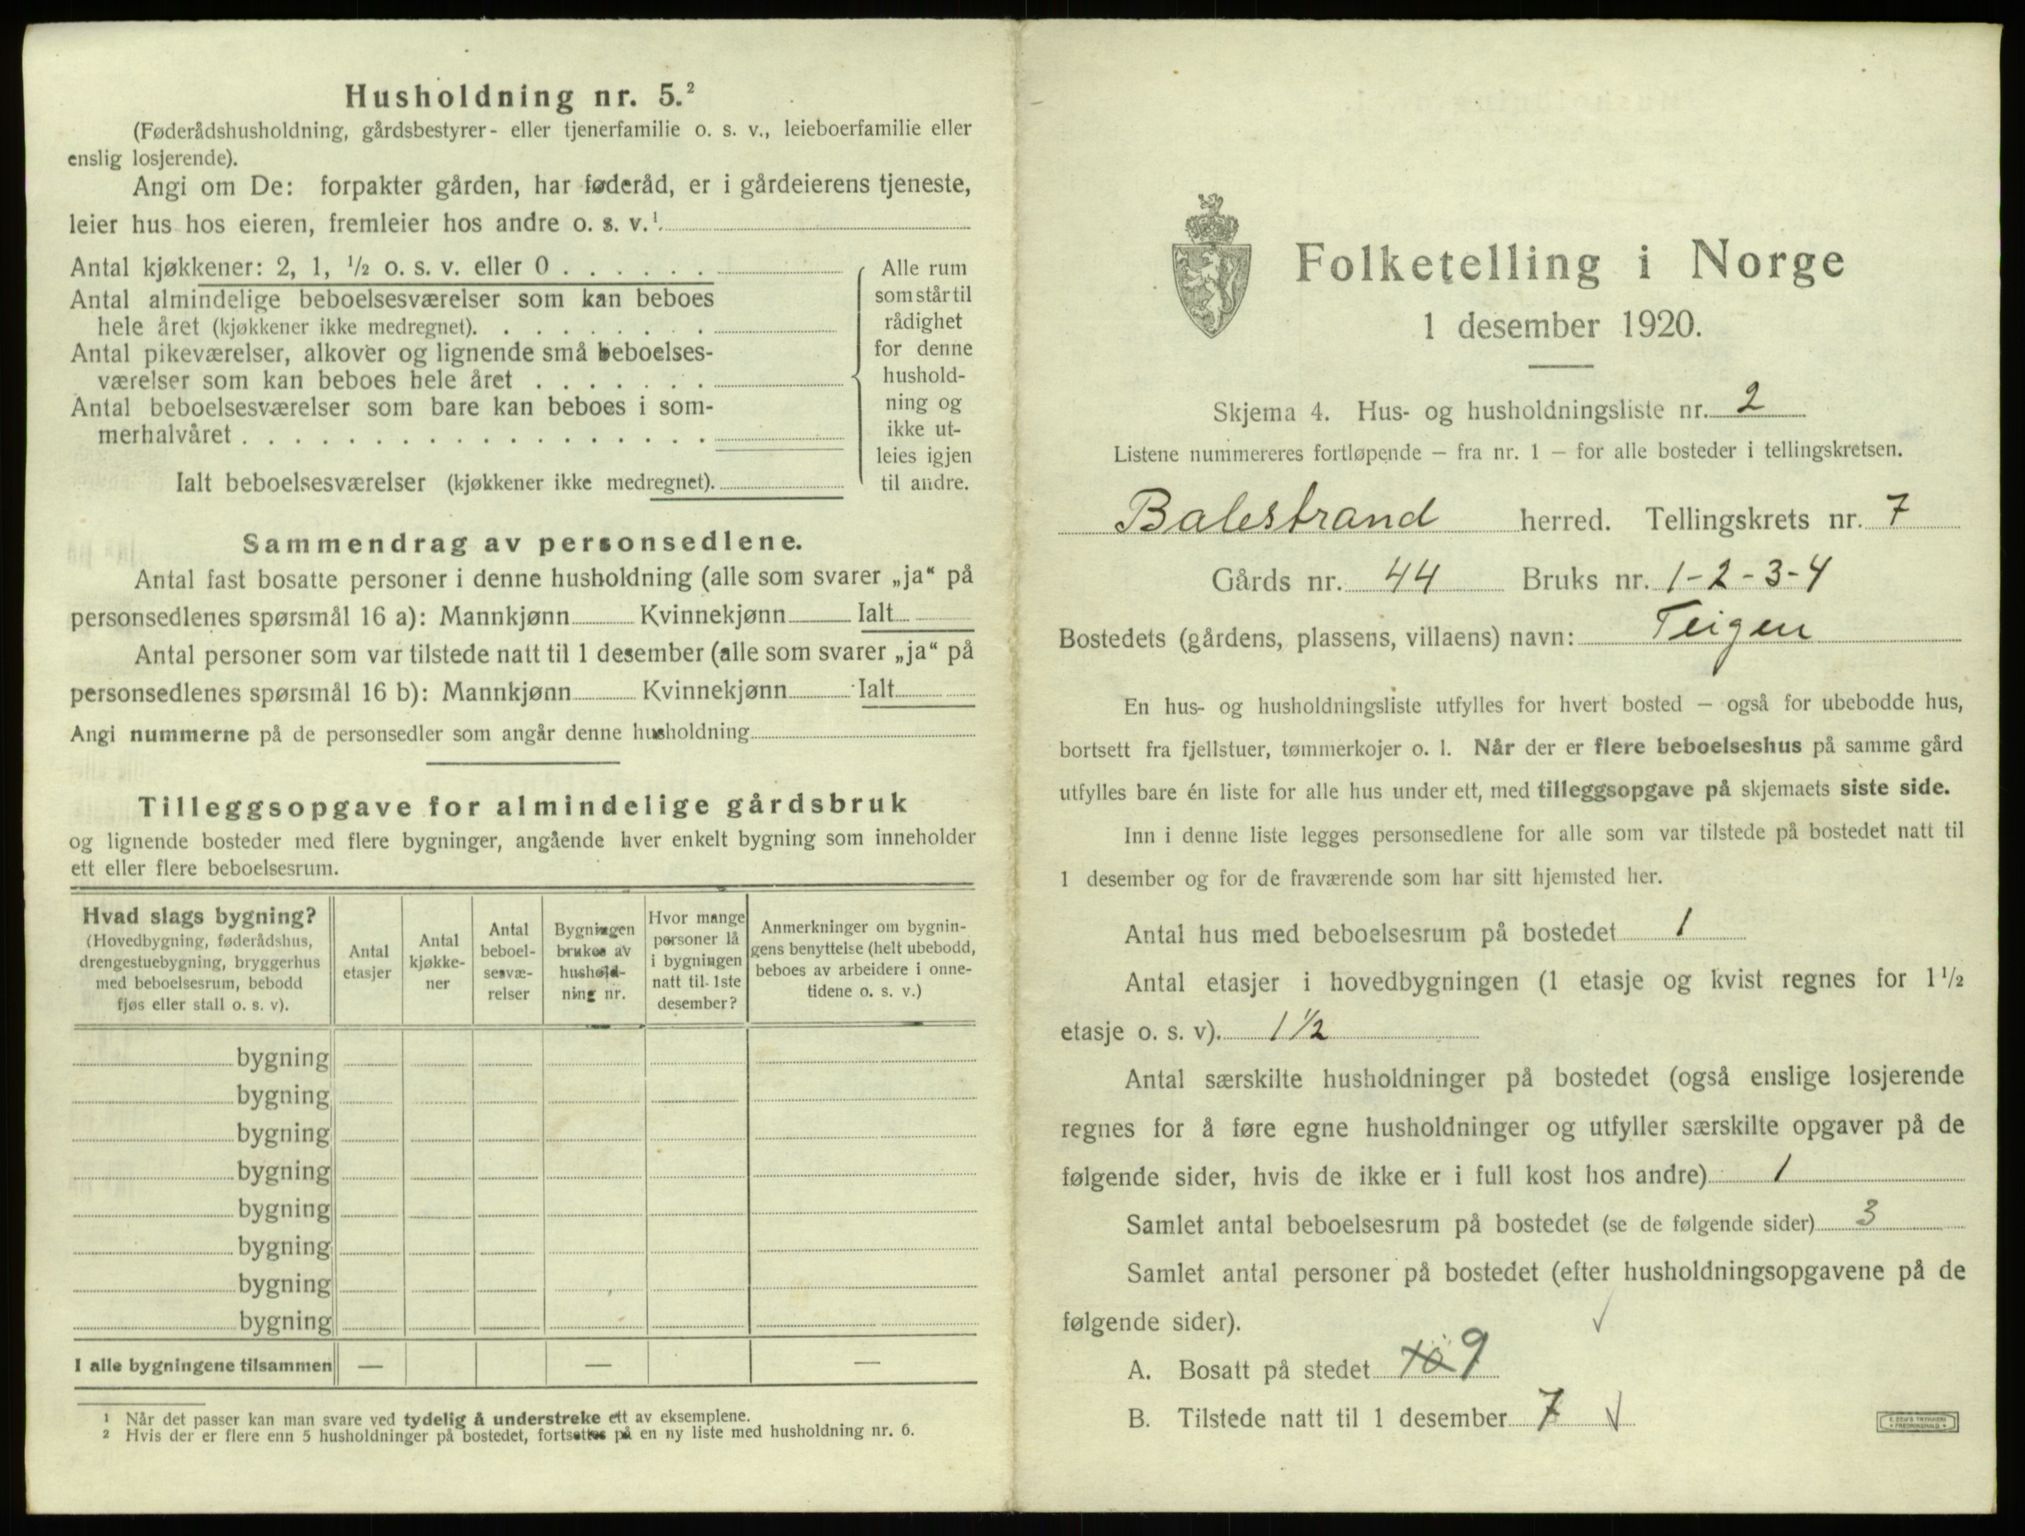 Husholdning nr. 5.²
(Føderådshusholdning, gårdsbestyrer- eller tjenerfamilie o. s. v., leieboerfamilie eller
enslig losjerende).
Angi om De: forpakter gården, har føderåd, er i gårdeierens tjeneste,
leier hus hos eieren, fremleier hos andre o. s. v.¹
Antal kjøkkener: 2, 1, ½ o. s. v. eller 0
Antal almindelige beboelsesværelser som kan beboes
hele året (kjøkkener ikke medregnet).
Antal pikeværelser, alkover og lignende små beboelses-
værelser som kan beboes hele året
Antal beboelsesværelser som bare kan beboes i som-
merhalvåret
Ialt beboelsesværelser (kjøkkener ikke medregnet).
Alle rum
som står til
rådighet
for denne
hushold-
ning og
ikke ut-
leies igjen
til andre.
Sammendrag av personsedlene.
Antal fast bosatte personer i denne husholdning (alle som svarer „ja“ på
personsedlenes spørsmål 16 a): Mannkjønn Kvinnekjønn Ialt
Antal personer som var tilstede natt til 1 desember (alle som svarer „ja“ på
personsedlenes spørsmål 16 b): Mannkjønn Kvinnekjønn Ialt
Angi nummerne på de personsedler som angår denne husholdning
Tilleggsopgave for almindelige gårdsbruk
og lignende bosteder med flere bygninger, angående hver enkelt bygning som inneholder
ett eller flere beboelsesrum.
Hvad slags bygning?
(Hovedbygning, føderådshus,
drengestuebygning, bryggerhus
med beboelsesrum, bebodd
fjøs eller stall o. s. v).
Antal
etasjer
Antal
kjøkke-
ner
Antal
beboel-
sesvæ-
relser
Bygningen
brukes av
hushold-
ning nr.
Hvor mange
personer lå
i bygningen
natt til 1ste
desember?
Anmerkninger om bygnin-
gens benyttelse (helt ubebodd,
beboes av arbeidere i onne-
tidene o. s. v.)
bygning
bygning
bygning
bygning
bygning
bygning
bygning
bygning
I alle bygningene tilsammen — — —
¹ Når det passer kan man svare ved tydelig å understreke ett av eksemplene.
² Hvis der er flere enn 5 husholdninger på bostedet, fortsettes på en ny liste med husholdning nr. 6.
Folketelling i Norge
1 desember 1920.
Skjema 4. Hus- og husholdningsliste nr. 2
Listene nummereres fortløpende – fra nr. 1 – for alle bosteder i tellingskretsen.
Balestrand herred. Tellingskrets nr. 7
Gårds nr. 44 Bruks nr. 1-2-3-4
Bostedets (gårdens, plassens, villaens) navn: Teigen
En hus- og husholdningsliste utfylles for hvert bosted – også for ubebodde hus,
bortsett fra fjellstuer, tømmerkojer o. l. Når der er flere beboelseshus på samme gård
utfylles bare én liste for alle hus under ett, med tilleggsopgave på skjemaets siste side.
Inn i denne liste legges personsedlene for alle som var tilstede på bostedet natt til
1 desember og for de fraværende som har sitt hjemsted her.
Antal hus med beboelsesrum på bostedet 1
Antal etasjer i hovedbygningen (1 etasje og kvist regnes for 1½
etasje o. s. v). 1½
Antal særskilte husholdninger på bostedet (også enslige losjerende
regnes for å føre egne husholdninger og utfyller særskilte opgaver på de
følgende sider, hvis de ikke er i full kost hos andre) 1
Samlet antal beboelsesrum på bostedet (se de følgende sider) 3
Samlet antal personer på bostedet (efter husholdningsopgavene på de
følgende sider).
A. Bosatt på stedet 10 9
B. Tilstede natt til 1 desember 7